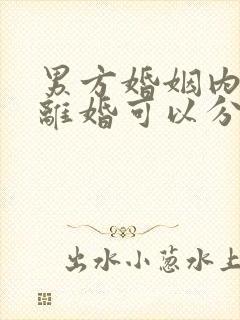 男方婚姻内
離婚可以分
出水小葱水上